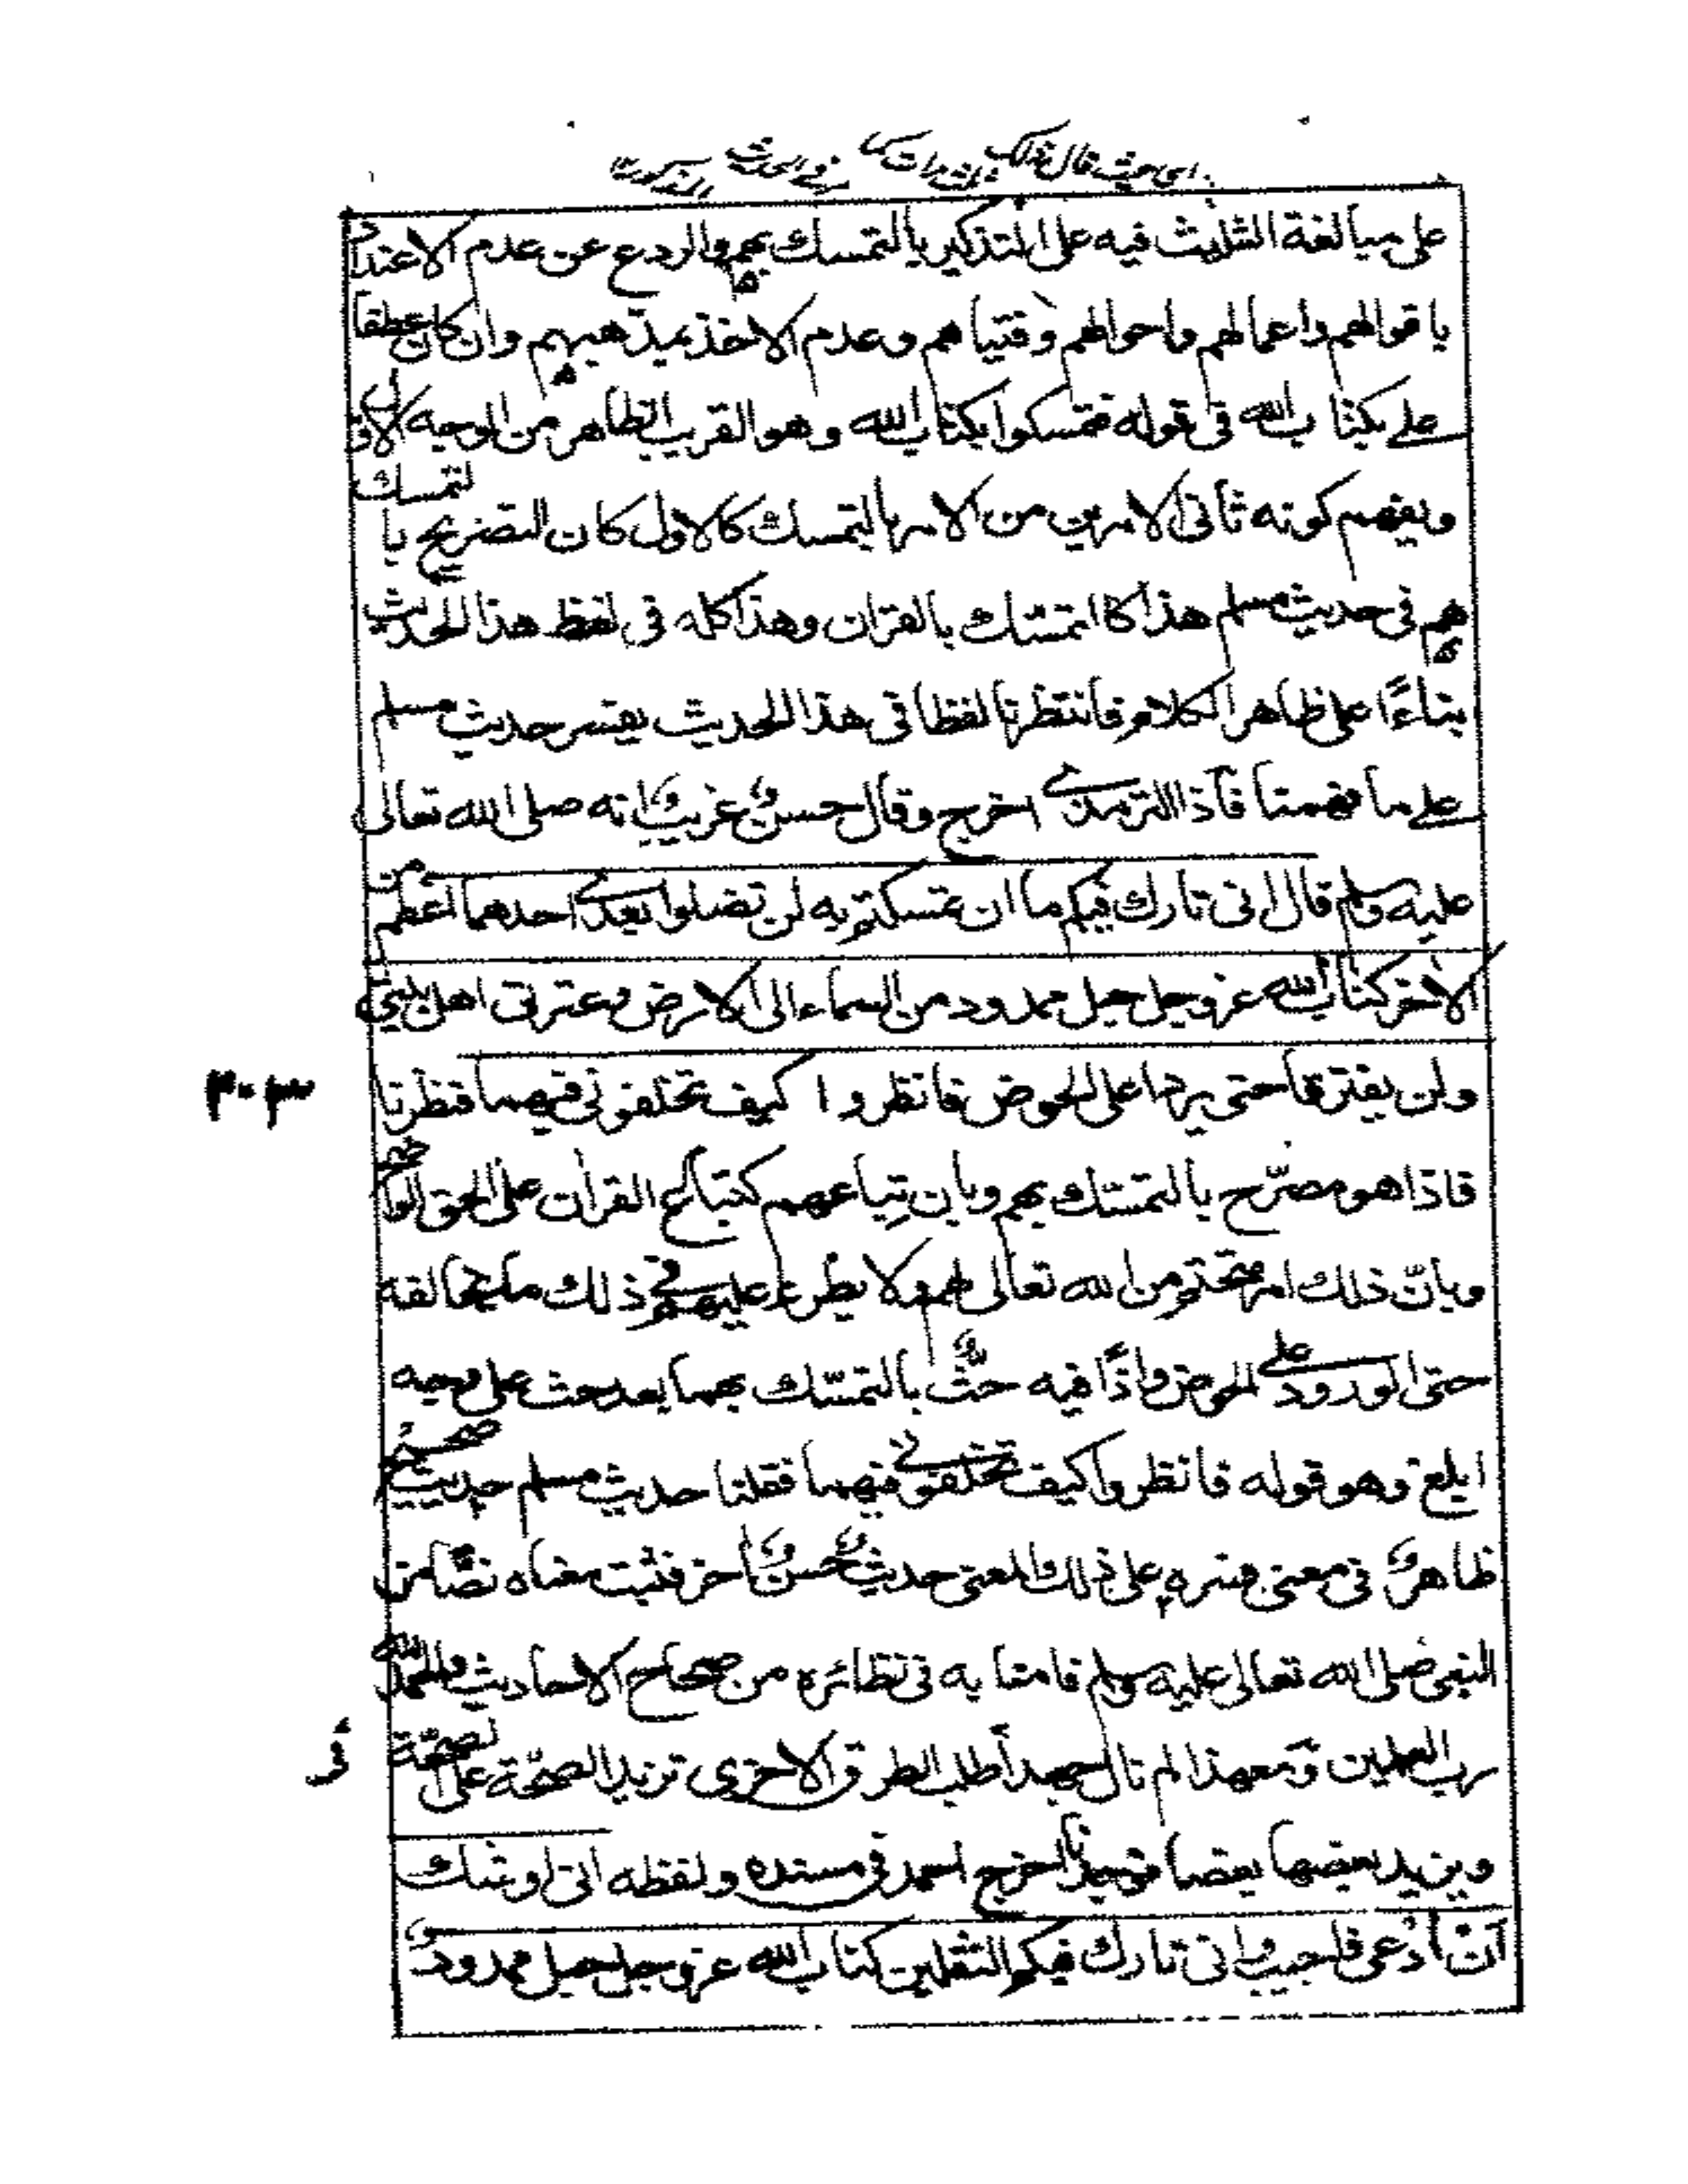 على مبالغة التثليث فيه على التذكير بالتمسك بهم والردع عن عدم الاعتداد
باقوالهم واعمالهم واحوالهم وفتياهم وعدم الاخذ بمذهبهم وان كان عطفا
على بكتاب الله فى قوله فتمسكوا بكتاب الله وهو القريب الظاهر من الوجه الاول
ويفهم كونه ثانى الامرين من الامر بالتمسك كالاول كان التصريح بالتمسك
بهم فى حديث مسلم هذا كالتمسك بالقران وهذا كله فى لفظ هذا الحديث
بناءً على ظاهر الكلام فانتظرنا لفظا فى هذا الحديث يفسر حديث مسلم
على ما فهمنا فاذا الترمذى اخرج وقال حسن غريب انه صلى الله تعالى
عليه وسلم قال انى تارك فيكم ما ان تمسكتم به لن تضلوا بعدى احدهما اعظم من
الاخر كتاب الله عز وجل حبل ممدود من السماء الى الارض وعترتى اهل بيتى
ولن يفترقا حتى يردا على الحوض فانظروا كيف تخلفونى فيهما فنظرنا
٤٠٣
فاذا هو مصرّح بالتمسّك بهم وبان تباعهم كتباع القرأن على الحق الواضح
وبانّ ذلك امر متحتم من الله تعالى لهم ولا يطرء عليهم فى ذلك ما يخالفه
حتى الورود على الحوض واذًا فيه حثٌّ بالتمسّك بهما بعد حث على وجه
ابلغ وهو قوله فانظروا كيف تخلفونى فيهما فقلنا حديث مسلم حديث صحيح
ظاهر فى معنى فسره على ذلك المعنى حديث حسن اخر فثبت معناه نصًّا من
النبى صلى الله تعالى عليه وسلم فامنا به فى نظائره من صحاح الاحاديث والحمد لله
رب العلمين ومعهذا لم نال جهدا طلب الطرق الاخرى تزيد الصحّة على الصحّة
ويزيد بعضها بعضا اخرج احمد فى مسنده ولفظه انى اوشك
ان ادعى فاجيب وانى تارك فيكم الثقلين كتاب الله عز وجل حبل ممدود